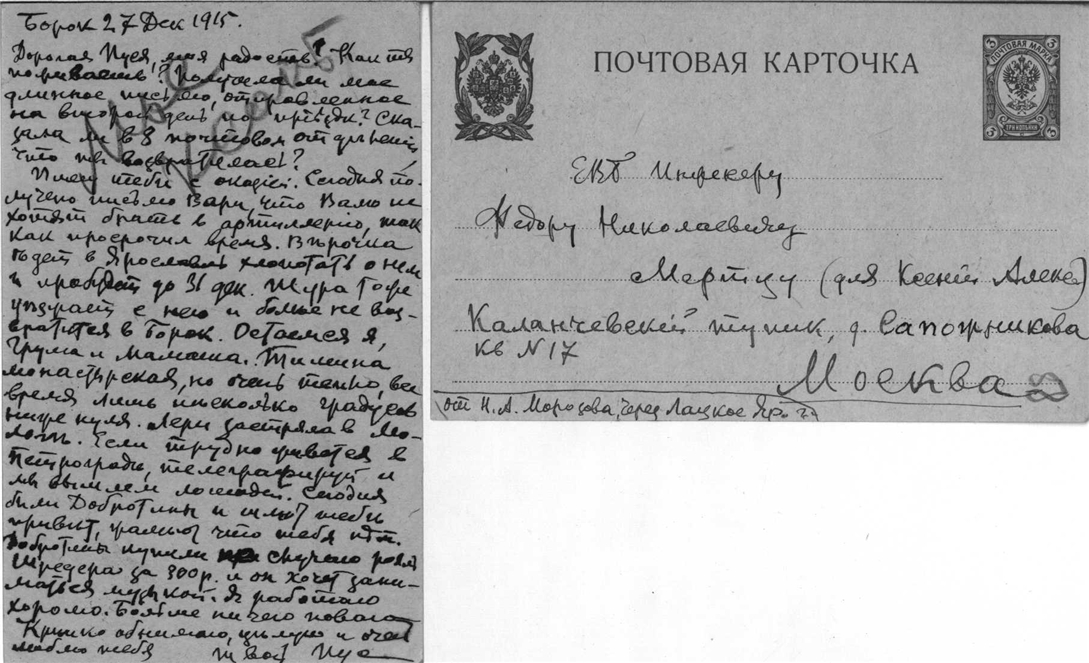 Борок 27 Дек 1915.
Дорогая Пуся, моя радость! Как ты
поживаешь? Получила ли мое
длинное письмо, отправленное
на второй день по приезде? Ска-
зала ли в 8 почтовом отделении,
что ты возвратилась?
Пишу тебе с оказией. Сегодня по-
лучено письмо Вари, что Валю не
хотят брать в артиллерию, так
как просрочил время. Вѣрочка
едет в Ярославль хлопотать о нем
и пробудет до 31 дек. Шура тоже
уезжает с нею и больше не воз-
вратится в Борок. Остаемся я,
Груша и Мамаша. Тишина
монастырская, но очень тепло, все
время лишь несколько градусов
ниже нуля. Лери застряла в Мо-
логе. Если трудно живется в
Петрограде, телеграфируй и
мы вышлем лошадей. Сегодня
были Добротины и шлют тебе
привет, жалеют что тебя нет.
Добротины купили случайно рояль
Шредера за 300 р. и он хочет зани-
маться музыкой. Я работаю
хорошо. Больше ничего нового
Крепко обнимаю, целую и очень
люблю тебя твой Пуся
ПОЧТОВАЯ КАРТОЧКА
ПОЧТОВАЯ МАРКА
3 3
ТРИ КОПѢЙКИ
ЕВБ Инженеру
Федору Николаевичу
Мертцу (для Ксении Алекс)
Каланчевский тупик, д. Сапожникова
кв N 17
Москва
от Н. А. Морозова, через Лацкое Яр. г.